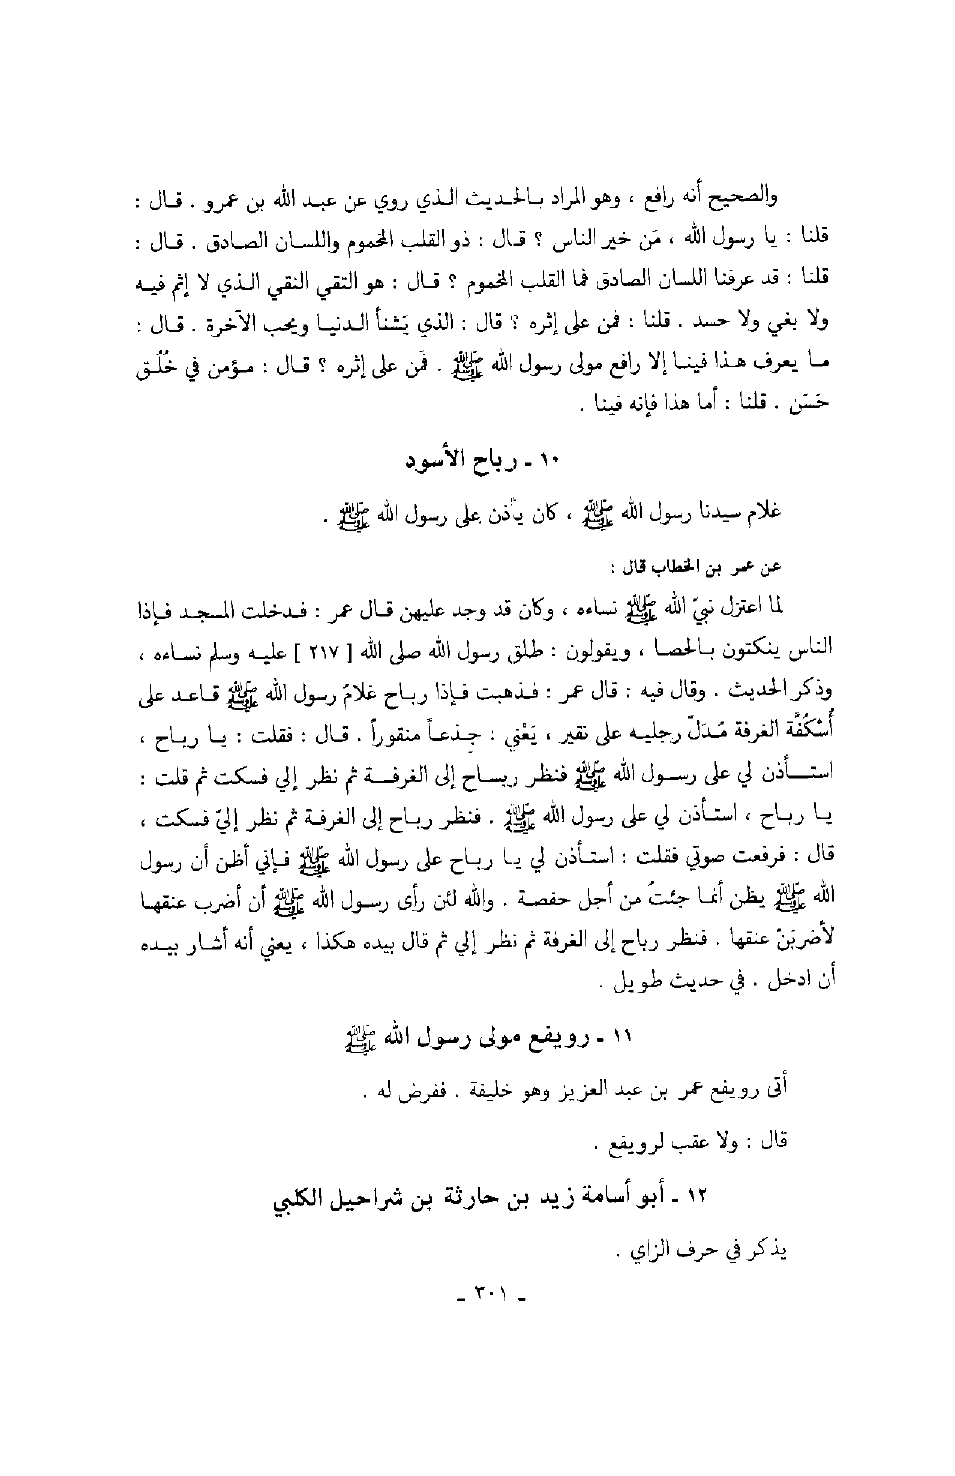 والصحيح أنه رافع ، وهو المراد بالحديث الذي روي عن عبد الله بن عمرو . قال :
قلنا : يا رسول الله ، مَن خير الناس ؟ قال : ذو القلب المخموم واللسان الصادق . قال :
قلنا : قد عرفنا اللسان الصادق فما القلب المخموم ؟ قال : هو التقي النقي الذي لا إثم فيه
ولا بغي ولا حسد . قلنا : فمن على إثره ؟ قال : الذي يَشنأ الدنيا ويحب الآخرة . قال :
ما يعرف هذا فينا إلا رافع مولى رسول الله ﷺ . فمَن على إثره ؟ قال : مؤمن في خُلُق
حَسَن . قلنا : أما هذا فإنه فينا .
١٠ ـ رباح الأسود
غلام سيدنا رسول الله ﷺ ، كان يأذن على رسول الله ﷺ .
عن عمر بن الخطاب قال :
لما اعتزل نبيّ الله ﷺ نساءه ، وكان قد وجد عليهن قال عمر : فدخلت المسجد فإذا
الناس ينكتون بالحصا ، ويقولون : طلق رسول الله صلى الله [ ٢١٧ ] عليه وسلم نساءه ،
وذكر الحديث . وقال فيه : قال عمر : فذهبت فإذا رباح غلامُ رسول الله ﷺ قاعد على
أُسْكُفَّة الغرفة مُدَلّ رجليه على نقير ، يَعْني : جذعاً منقوراً . قال : فقلت : يا رباح ،
استأذن لي على رسول الله ﷺ فنظر رباح إلى الغرفة ثم نظر إلي فسكت ثم قلت :
يا رباح ، استأذن لي على رسول الله ﷺ . فنظر رباح إلى الغرفة ثم نظر إليّ فسكت ،
قال : فرفعت صوتي فقلت : استأذن لي يا رباح على رسول الله ﷺ فإني أظن أن رسول
الله ﷺ يظن أنما جئتُ من أجل حفصة . والله لئن رأى رسول الله ﷺ أن أضرب عنقها
لأضربَنّ عنقها . فنظر رباح إلى الغرفة ثم نظر إلي ثم قال بيده هكذا ، يعني أنه أشار بيده
أن ادخل . في حديث طويل .
١١ ـ رويفع مولى رسول الله ﷺ
أتى رويفع عمر بن عبد العزيز وهو خليفة . ففرض له .
قال : ولا عقب لرويفع .
١٢ ـ أبو أسامة زيد بن حارثة بن شراحيل الكلبي
يذكر في حرف الزاي .
ـ ٣٠١ ـ